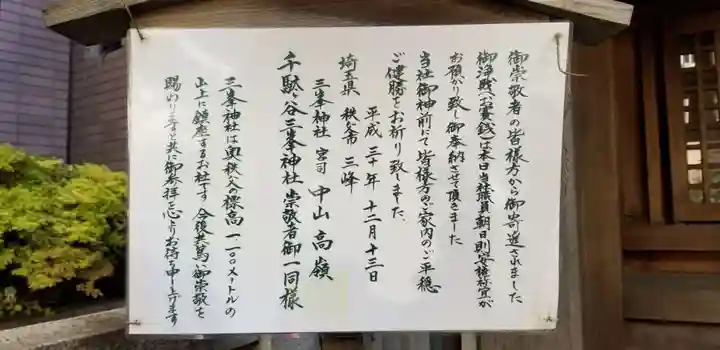 御崇敬者の皆様方から御寄進されました
御浄財(お賽銭)は本日当社職員朝日則安権祢宜が
お預かり致し御奉納させて頂きました
当社御神前にて皆様方のご家内のご平穏
ご健勝をお祈り致しました、
平成三十年十二月十三日
埼玉県秩父市三峰
三峯神社宮司中山高嶺
千駄ヶ谷三峯神社崇敬者御一同様
三峯神社は奥秩父の標高一、一〇〇メートルの
山上に鎮座するお社です今後共篤い御崇敬を
賜わりますと共に御参拝を心よりお待ち申し上げます